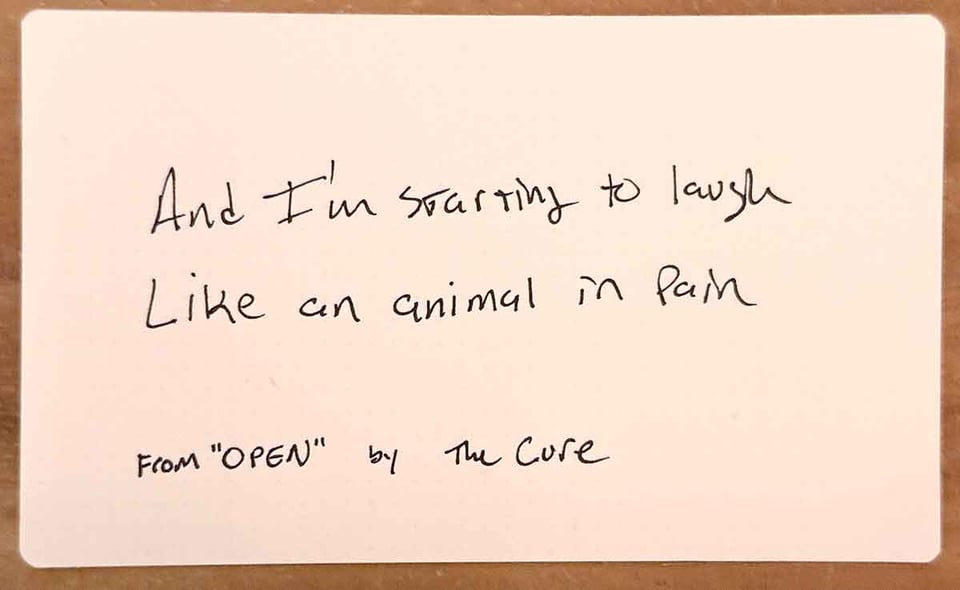 And I'm starting to laugh
Like an animal in Pain
From "OPEN" by The Cure